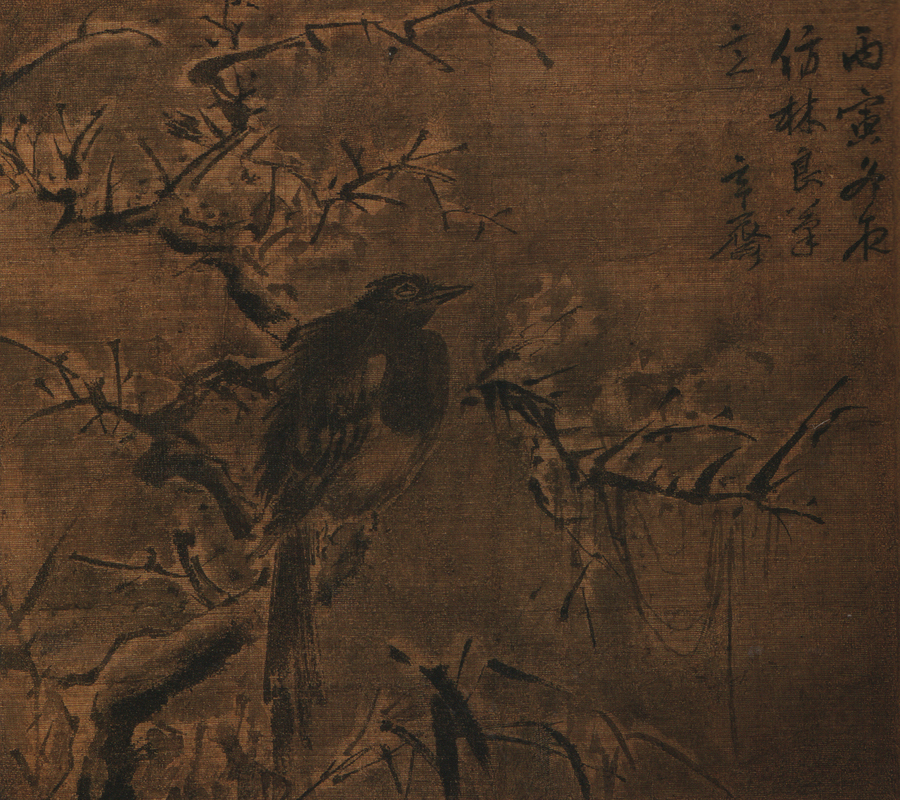 丙寅冬夜
仿林良筆
意 辛齋